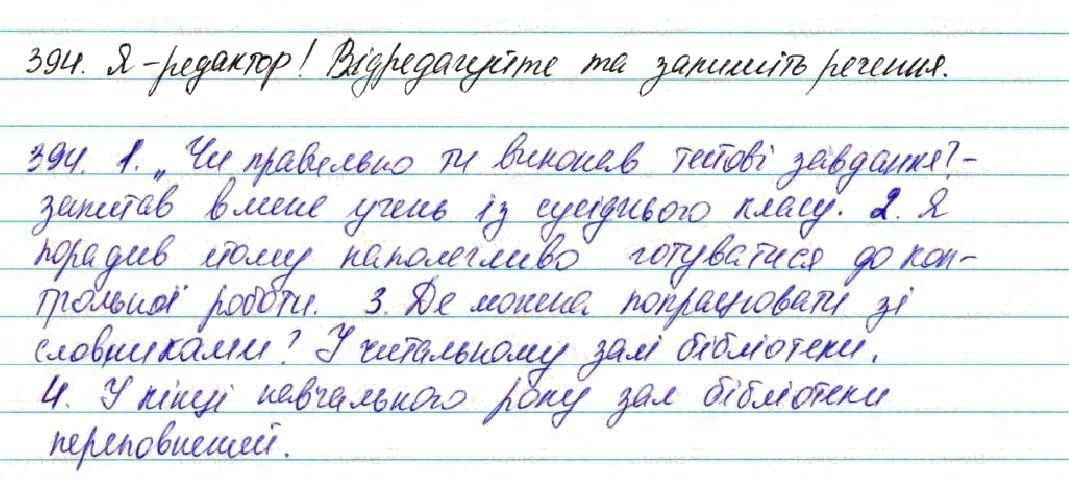 394. Я-редактор! Відредагуйте та запишіть речення.
394. 1. „Чи правильно ти виконав тестові завдання?-
запитав в мене учень із сусіднього класу. 2. Я
порадив йому наполегливо готуватися до кон-
трольної роботи. 3. Де можна попрацювати зі
словниками? У читальному залі бібліотеки.
4. У кінці навчального року зал бібліотеки
переповнений.